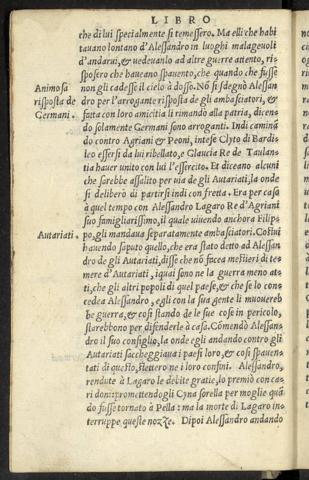 LIBRO
che di lui specialmente si temessero. Ma elli che habi
tauano lontano d'Alessandro in luoghi malageuoli
d'andarui, & uedeuanlo ad altre guerre attento, ri-
sposero che haueano spauento, che quando che fusse
Animosa risposta de Germani.
non gli cadesse il cielo à dosso. Nõ si sdegnò Alessan
dro per l'arrogante risposta de gli ambasciatori, &
fatta con loro amicitia li rimandò alla patria, dicen-
do solamente Germani sono arroganti. Indi caminã
do contro Agriani & Peoni, intese Clyto di Bardi-
leo essersi da lui ribellato, e Glaucia Re de Taulan-
tia hauer unito con lui l'essercito. Et diceano alcuni
che sarebbe assalito per uia de gli Autariati, la onde
si deliberò di partirsi indi con fretta. Era per casa
à quel tempo con Alessandro Lagaro Re d'Agriani
suo famigliarissimo, il quale uiuendo anchora Filip-
Autariati.
po, gli mandaua separatamente ambasciatori. Costui
hauendo saputo quello, che era stato detto ad Alessan
dro de gli Autariati, disse che nõ facea mestieri di te-
mere d'Autariati, i quai sono ne la guerra meno at-
ti, che gli altri popoli di quel paese, & che se lo con-
cedea Alessandro, egli con la sua gente li muouereb
be guerra, & cosi stando de le sue cose in pericolo,
starebbono per difenderle à casa. Cõmendò Alessan-
dro il suo consiglio, la onde egli andando contro gli
Autariati saccheggiaua i paesi loro, & cosi spauen-
tati di questo, stettero ne i loro confini. Alessandro,
rendute à Lagaro le debite gratie, lo premiò con ca-
ri doni: promettendogli Cyna sorella per moglie quã
do fusse tornato à Pella: ma la morte di Lagaro in-
terruppe queste nozze. Dipoi Alessandro andando